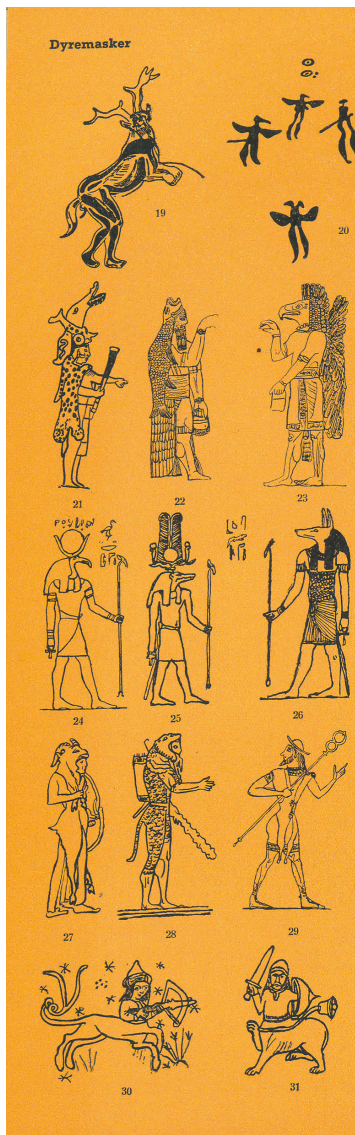 Dyremasker
19
20
21
22
23
24
25
26
27
28
29
30
31